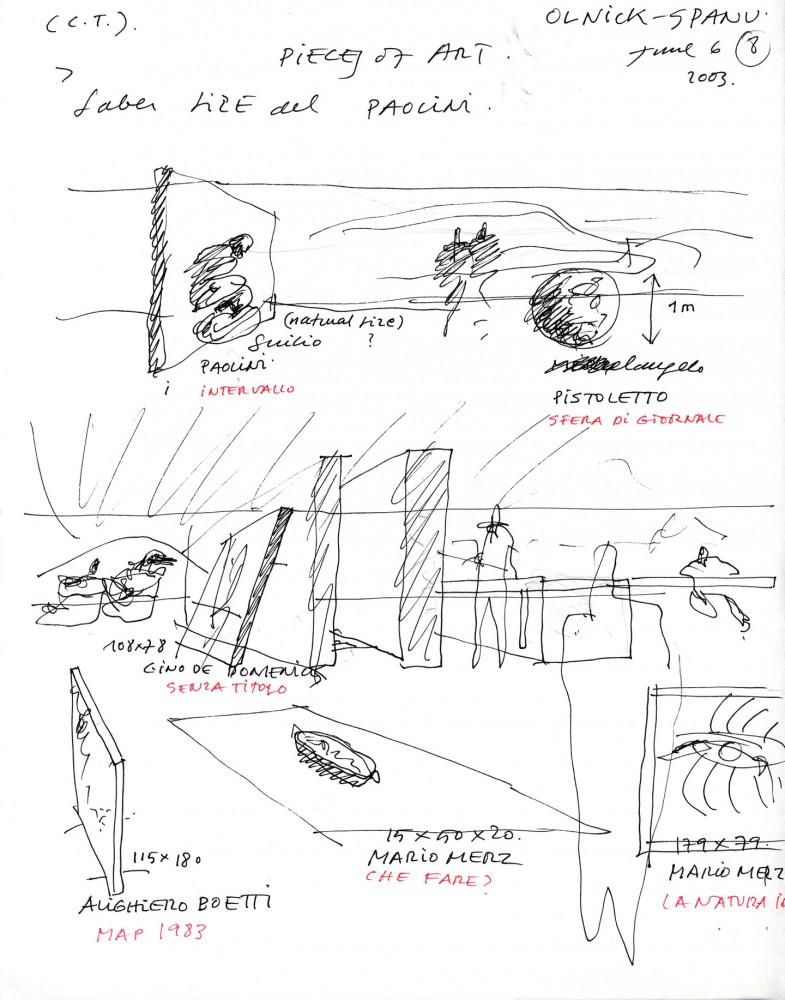 (C.T.).
OLNICK-SPANU.
June 6 8
2003.
PIECES OF ART.
>
Saber SIZE del PAOLINI.
1m
(natural size)
?
Guilio
PAOLINI.
INTERVALLO
PISTOLETTO
SFERA DI GIORNALE
108x78
GINO DE DOMENICIS
SENZA TITOLO
115 x 180
ALIGHIERO BOETTI
MAP 1983
15 x 50 x 20.
MARIO MERZ
CHE FARE?
179 x 79.
MARIO MERZ
LA NATURA